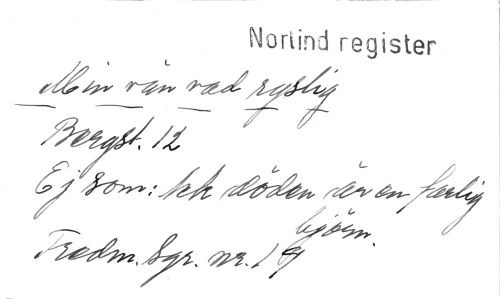 Norlind register
Min vän vad ryslig
Bergst. 12
Ej som: kk döden är en farlig
björn.
Fredm. Sgr. nr. 19